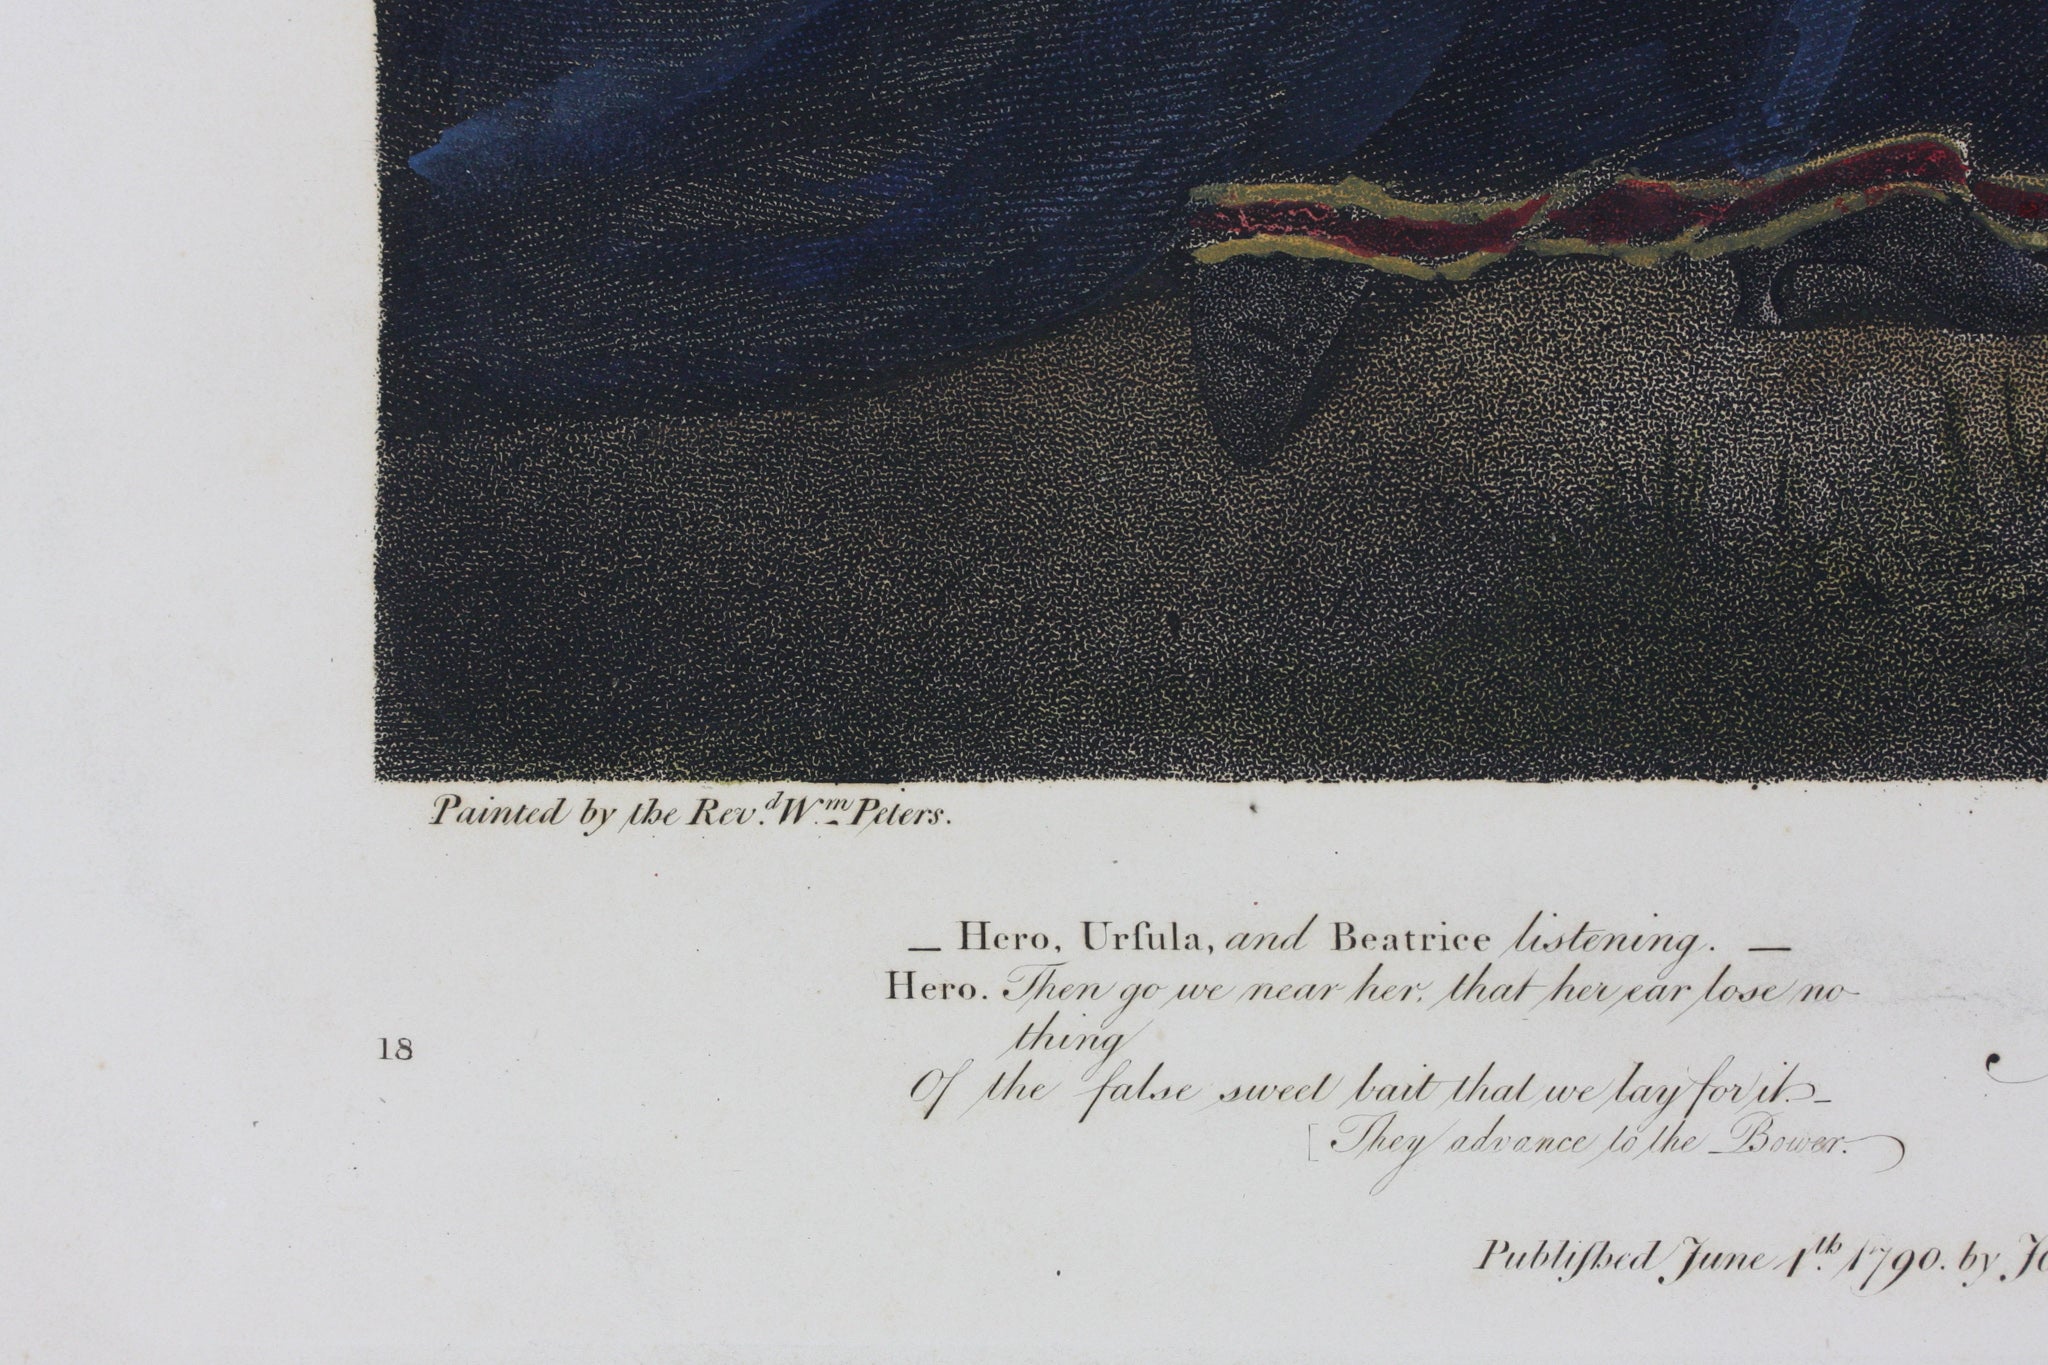 Painted by the Rev.d Wm Peters.
— Hero, Urſula, and Beatrice listening. —
Hero. Then go we near her, that her ear lose no
thing
18
Of the false sweet bait that we lay for it. –
[They advance to the Bower.
Publiſhed June 4th 1790. by Jo